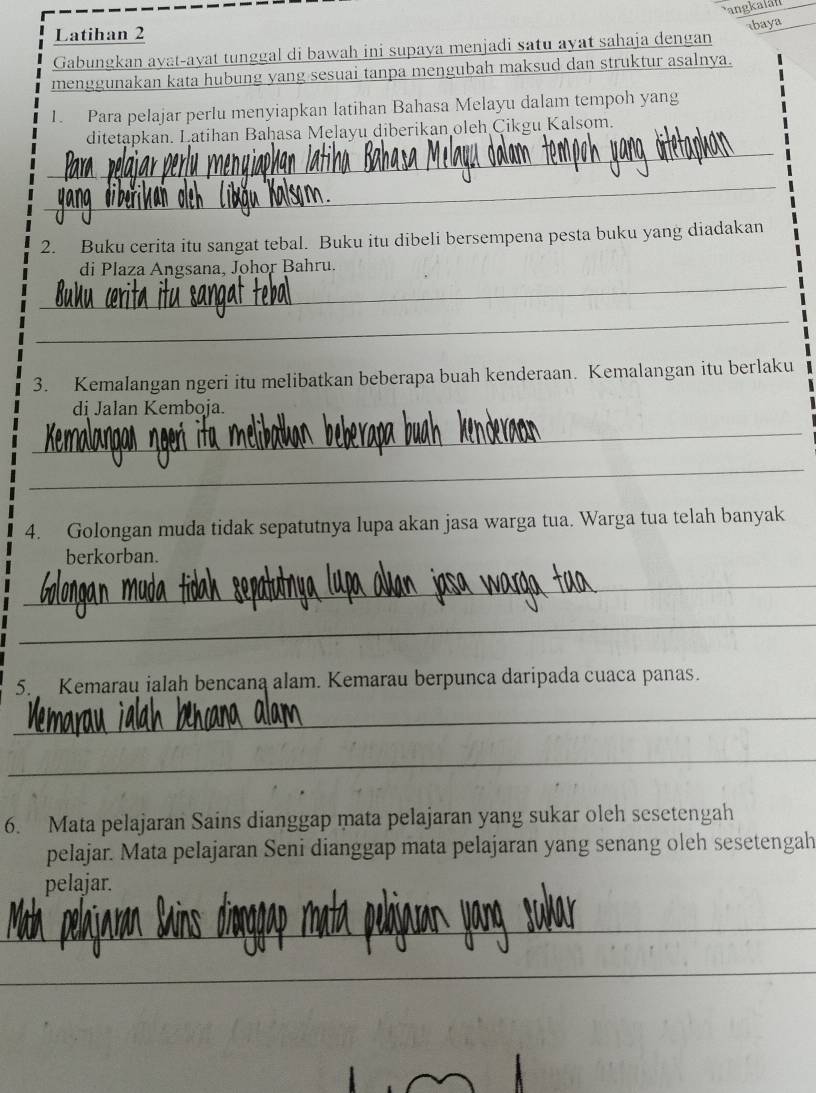 baya
Latihan 2
Gabungkan ayat-ayat tunggal di bawah ini supaya menjadi satu ayat sahaja dengan
menggunakan kata hubung yang sesuai tanpa mengubah maksud dan struktur asalnya.
1. Para pelajar perlu menyiapkan latihan Bahasa Melayu dalam tempoh yang
ditetapkan. Latihan Bahasa Melayu diberikan oleh Cikgu Kalsom.
Para pelajar perlu menyiaphan latiha Bahasa Melayu dalam tempoh yang ditetaphan
yang diberikan oleh Cikgu Kalsom.
2. Buku cerita itu sangat tebal. Buku itu dibeli bersempena pesta buku yang diadakan
di Plaza Angsana, Johor Bahru.
Buku cerita itu sangat tebal
3. Kemalangan ngeri itu melibatkan beberapa buah kenderaan. Kemalangan itu berlaku
di Jalan Kemboja.
Kemalangan ngeri itu melibatkan beberapa buah kenderaan
4. Golongan muda tidak sepatutnya lupa akan jasa warga tua. Warga tua telah banyak
berkorban.
Golongan muda tidah sepatutnya lupa akan jasa warga tua
5. Kemarau ialah bencana alam. Kemarau berpunca daripada cuaca panas.
Kemarau ialah bencana alam
6. Mata pelajaran Sains dianggap mata pelajaran yang sukar oleh sesetengah
pelajar. Mata pelajaran Seni dianggap mata pelajaran yang senang oleh sesetengah
pelajar.
Mata pelajaran Sains dianggap mata pelajaran yang sukar